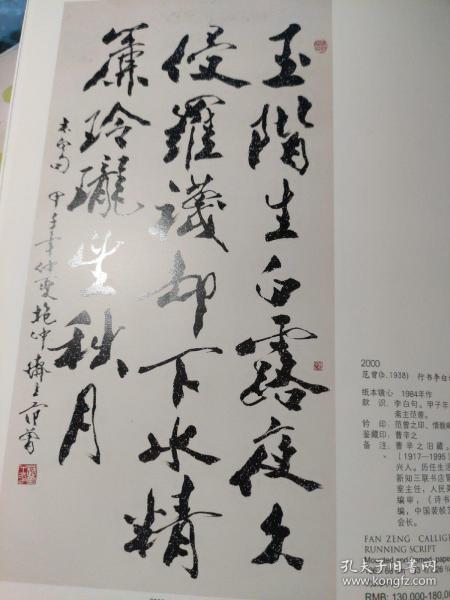 玉階生白露夜久
侵羅襪却下水精
簾玲瓏望秋月
李白句 甲子年仲夏 抱冲齋主范曾
2000
范曾(b.1938) 行书李白
纸本镜心 1984年作
款 识：李白句。甲子年
斋主范曾。
钤 印：范曾之印、
鉴藏印：曹辛之
备 注：曹辛之旧藏。
(1917—1995)
兴人。历任生活
新知三联书店
室主任，人民美
编审，《诗书
编，中国装帧艺
会长。
FAN ZENG CALLIG
RUNNING SCRIPT
Mounted and framed, paper
RMB: 130,000-180,00
孔夫子旧书网